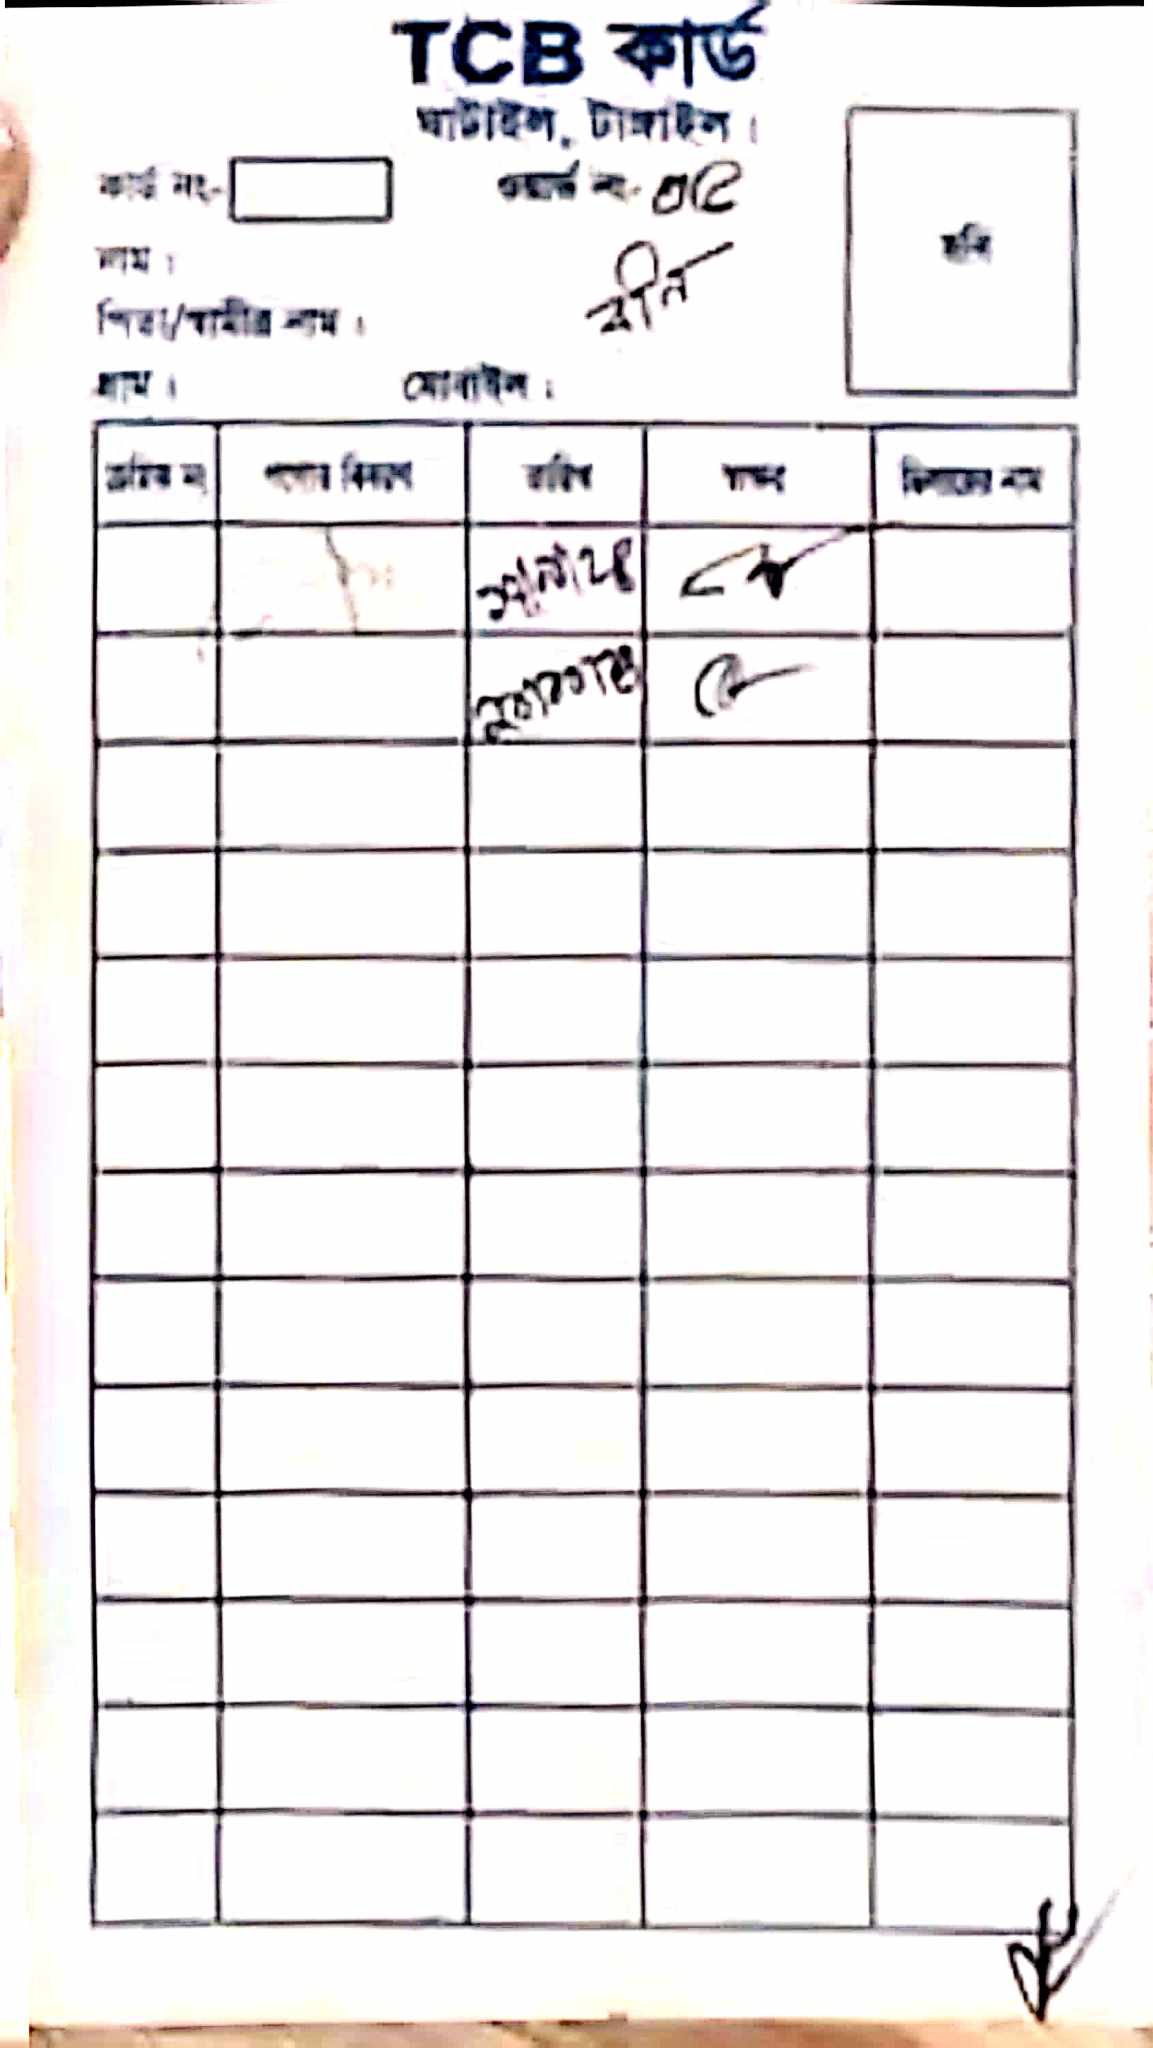 TCB কার্ড
ঘাটাইল, টাঙ্গাইল।
কার্ড নং- ওয়ার্ড নং-
ছবি
নাম :
পিতা/স্বামীর নাম :
গ্রাম : মোবাইল :
ক্রমিক নং পণ্যের বিবরণ তারিখ স্বাক্ষর ডিলারের নাম